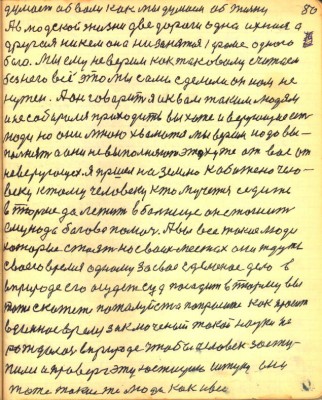 думает об вам как мы думаем об жизни 80
А в людской жизни две дороги одна их ния а
другая никем она ни занята кроме одного
бога. Мы ему не верим как таковому считаем
без него всё это мы сами сделали он нам не
нужен. А он говорит я к вам таким людям
и не собирался приходить вы хоть и верующие
люди но они мною хвалите мы верим
надо выполнять а они не выполняют это хуже от вас от
неверующих Я пришел на землю к
человеку к тому человеку кто мучется сидит
в тюрьме да лежит в больнице он стонит
ему надо богова помочь. А вы все такие люди
которые стоят на своих местах они ждут
своего время одному за свое сделаное дело в
природе его они судят посадят в тюрьму вы
тоже скажите пожалуйста как
военное время заключеный такой науки не
рождалось в природе чтобы человек засту-
пил и проверг эту штуку они
тоже такие же люди как и все